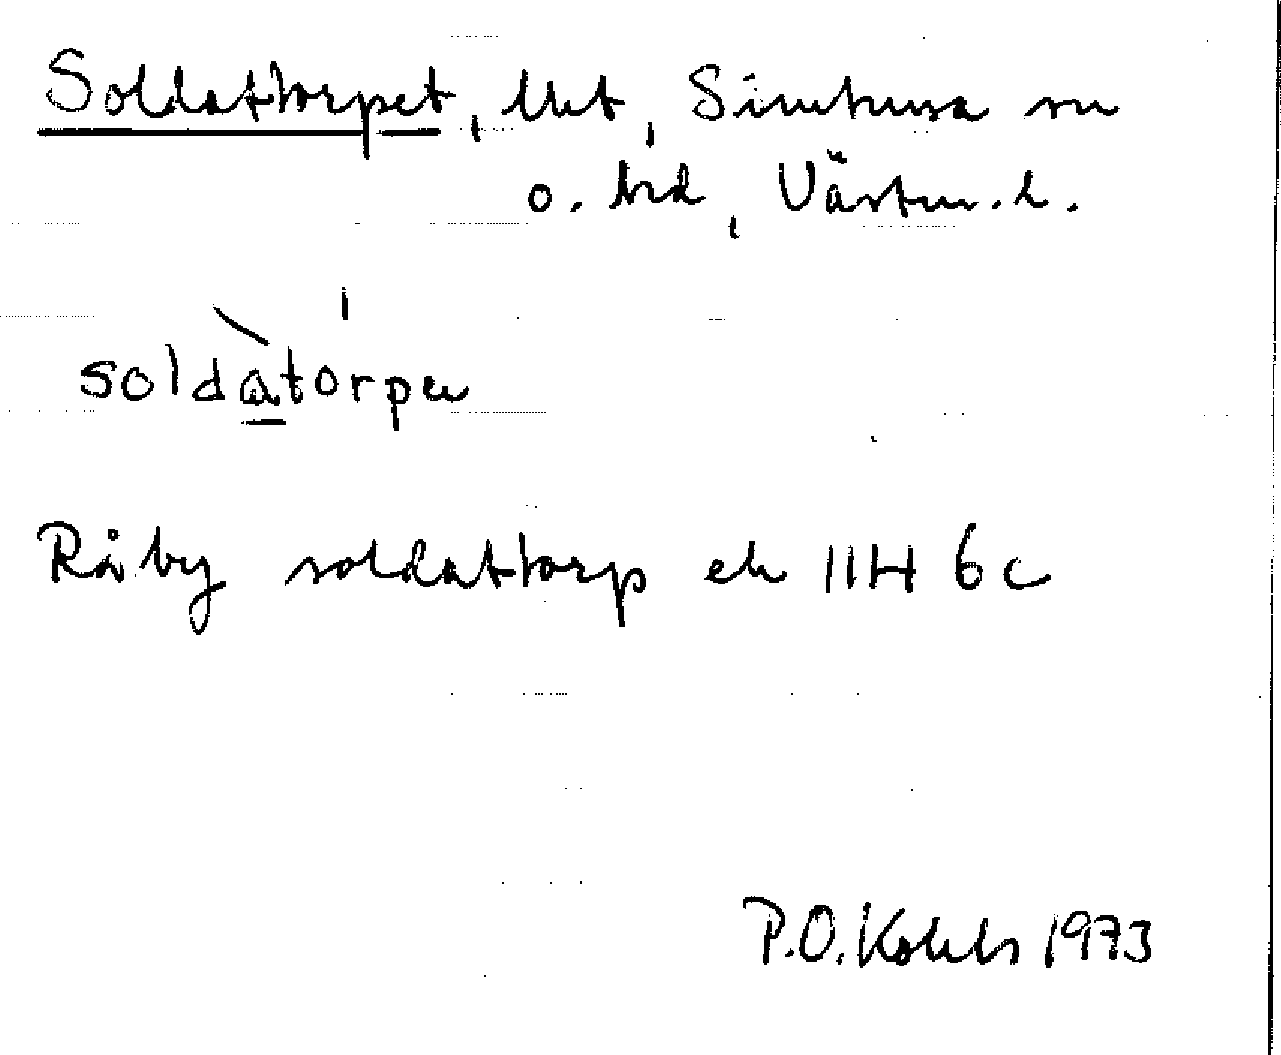 Soldattorpet, lht, Simtuna sn
o. hd, Västm. l.
soldàtórpeṭ
Råby soldattorp ek 11H 6c
P.O. 1973